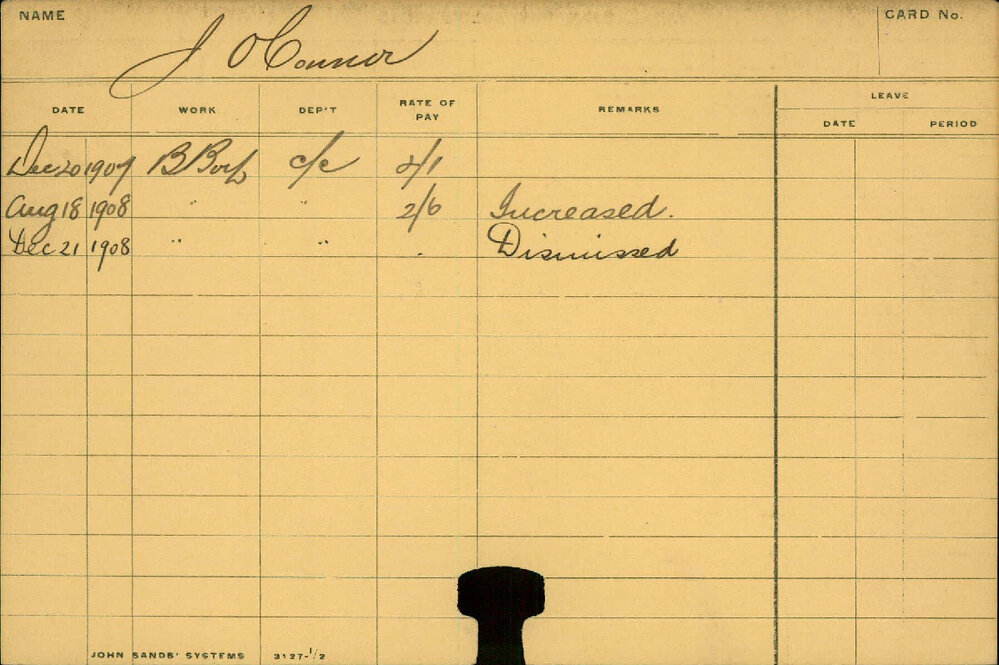 NAME J O'Connor CARD No.
DATE WORK DEP'T RATE OF PAY REMARKS LEAVE
DATE PERIOD
Dec 20 1907 B Boy c/c 2/1
Aug 18 1908 " " 2/6 Increased.
Dec 21 1908 " " Dismissed
JOHN SANDS' SYSTEMS 3127-1/2